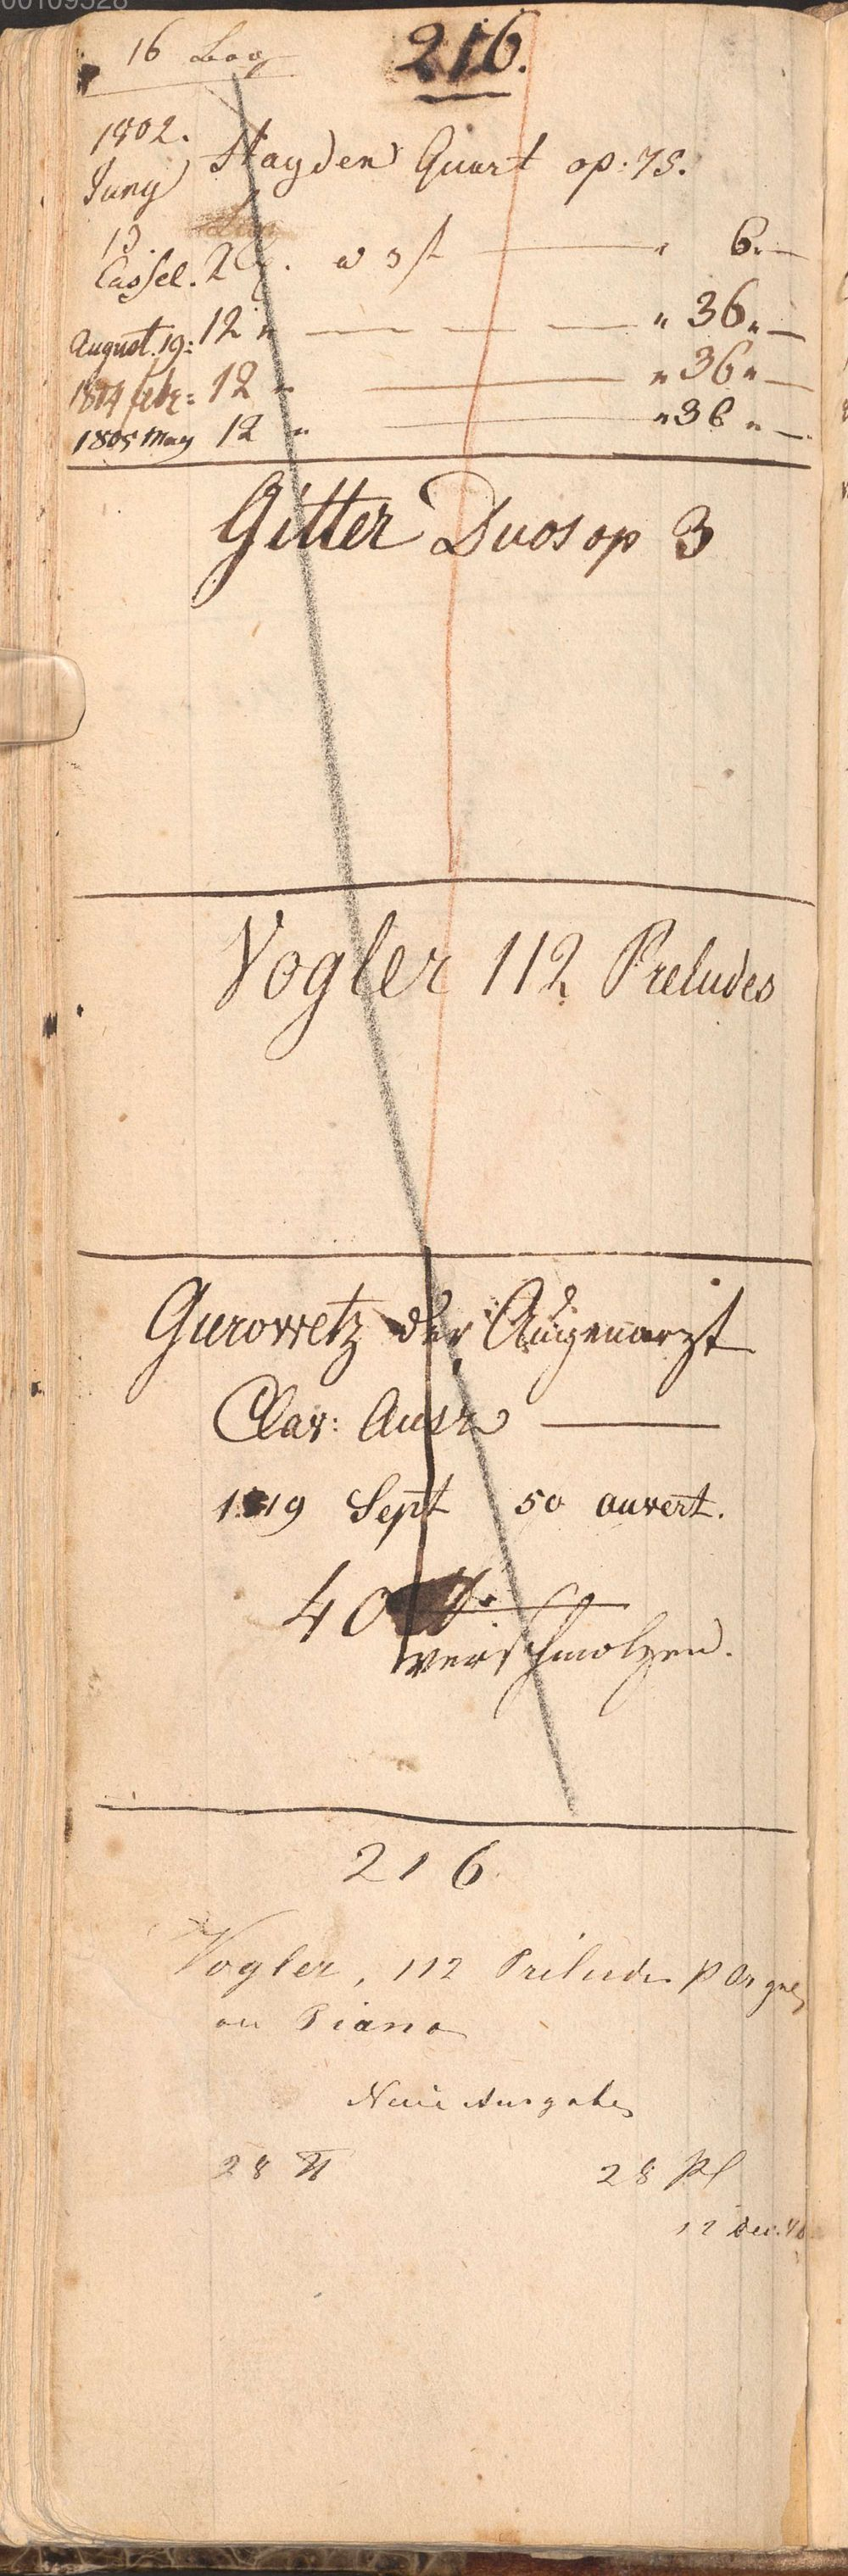 00109528
16 Bog
216.
1802.
Juny
Hayden Quart op: 75.
13.
Cassel. 2 a 3 f " 6. —
August. 19: 12 " — — — " 36 " —
1804 febr: 12 " — " 36 " —
1805 May 12 " — " 36 " —
Gitter Duos op 3
Vogler 112 Preludes
Gurowetz der Augenarzt
Clav: Ausz
1819 Sept 50 auvert.
40
verschmolzen.
216
Vogler, 112 Preludes p Orgue
ou Piano
Neue Ausgabe
28 28 Pl
12 Dec.